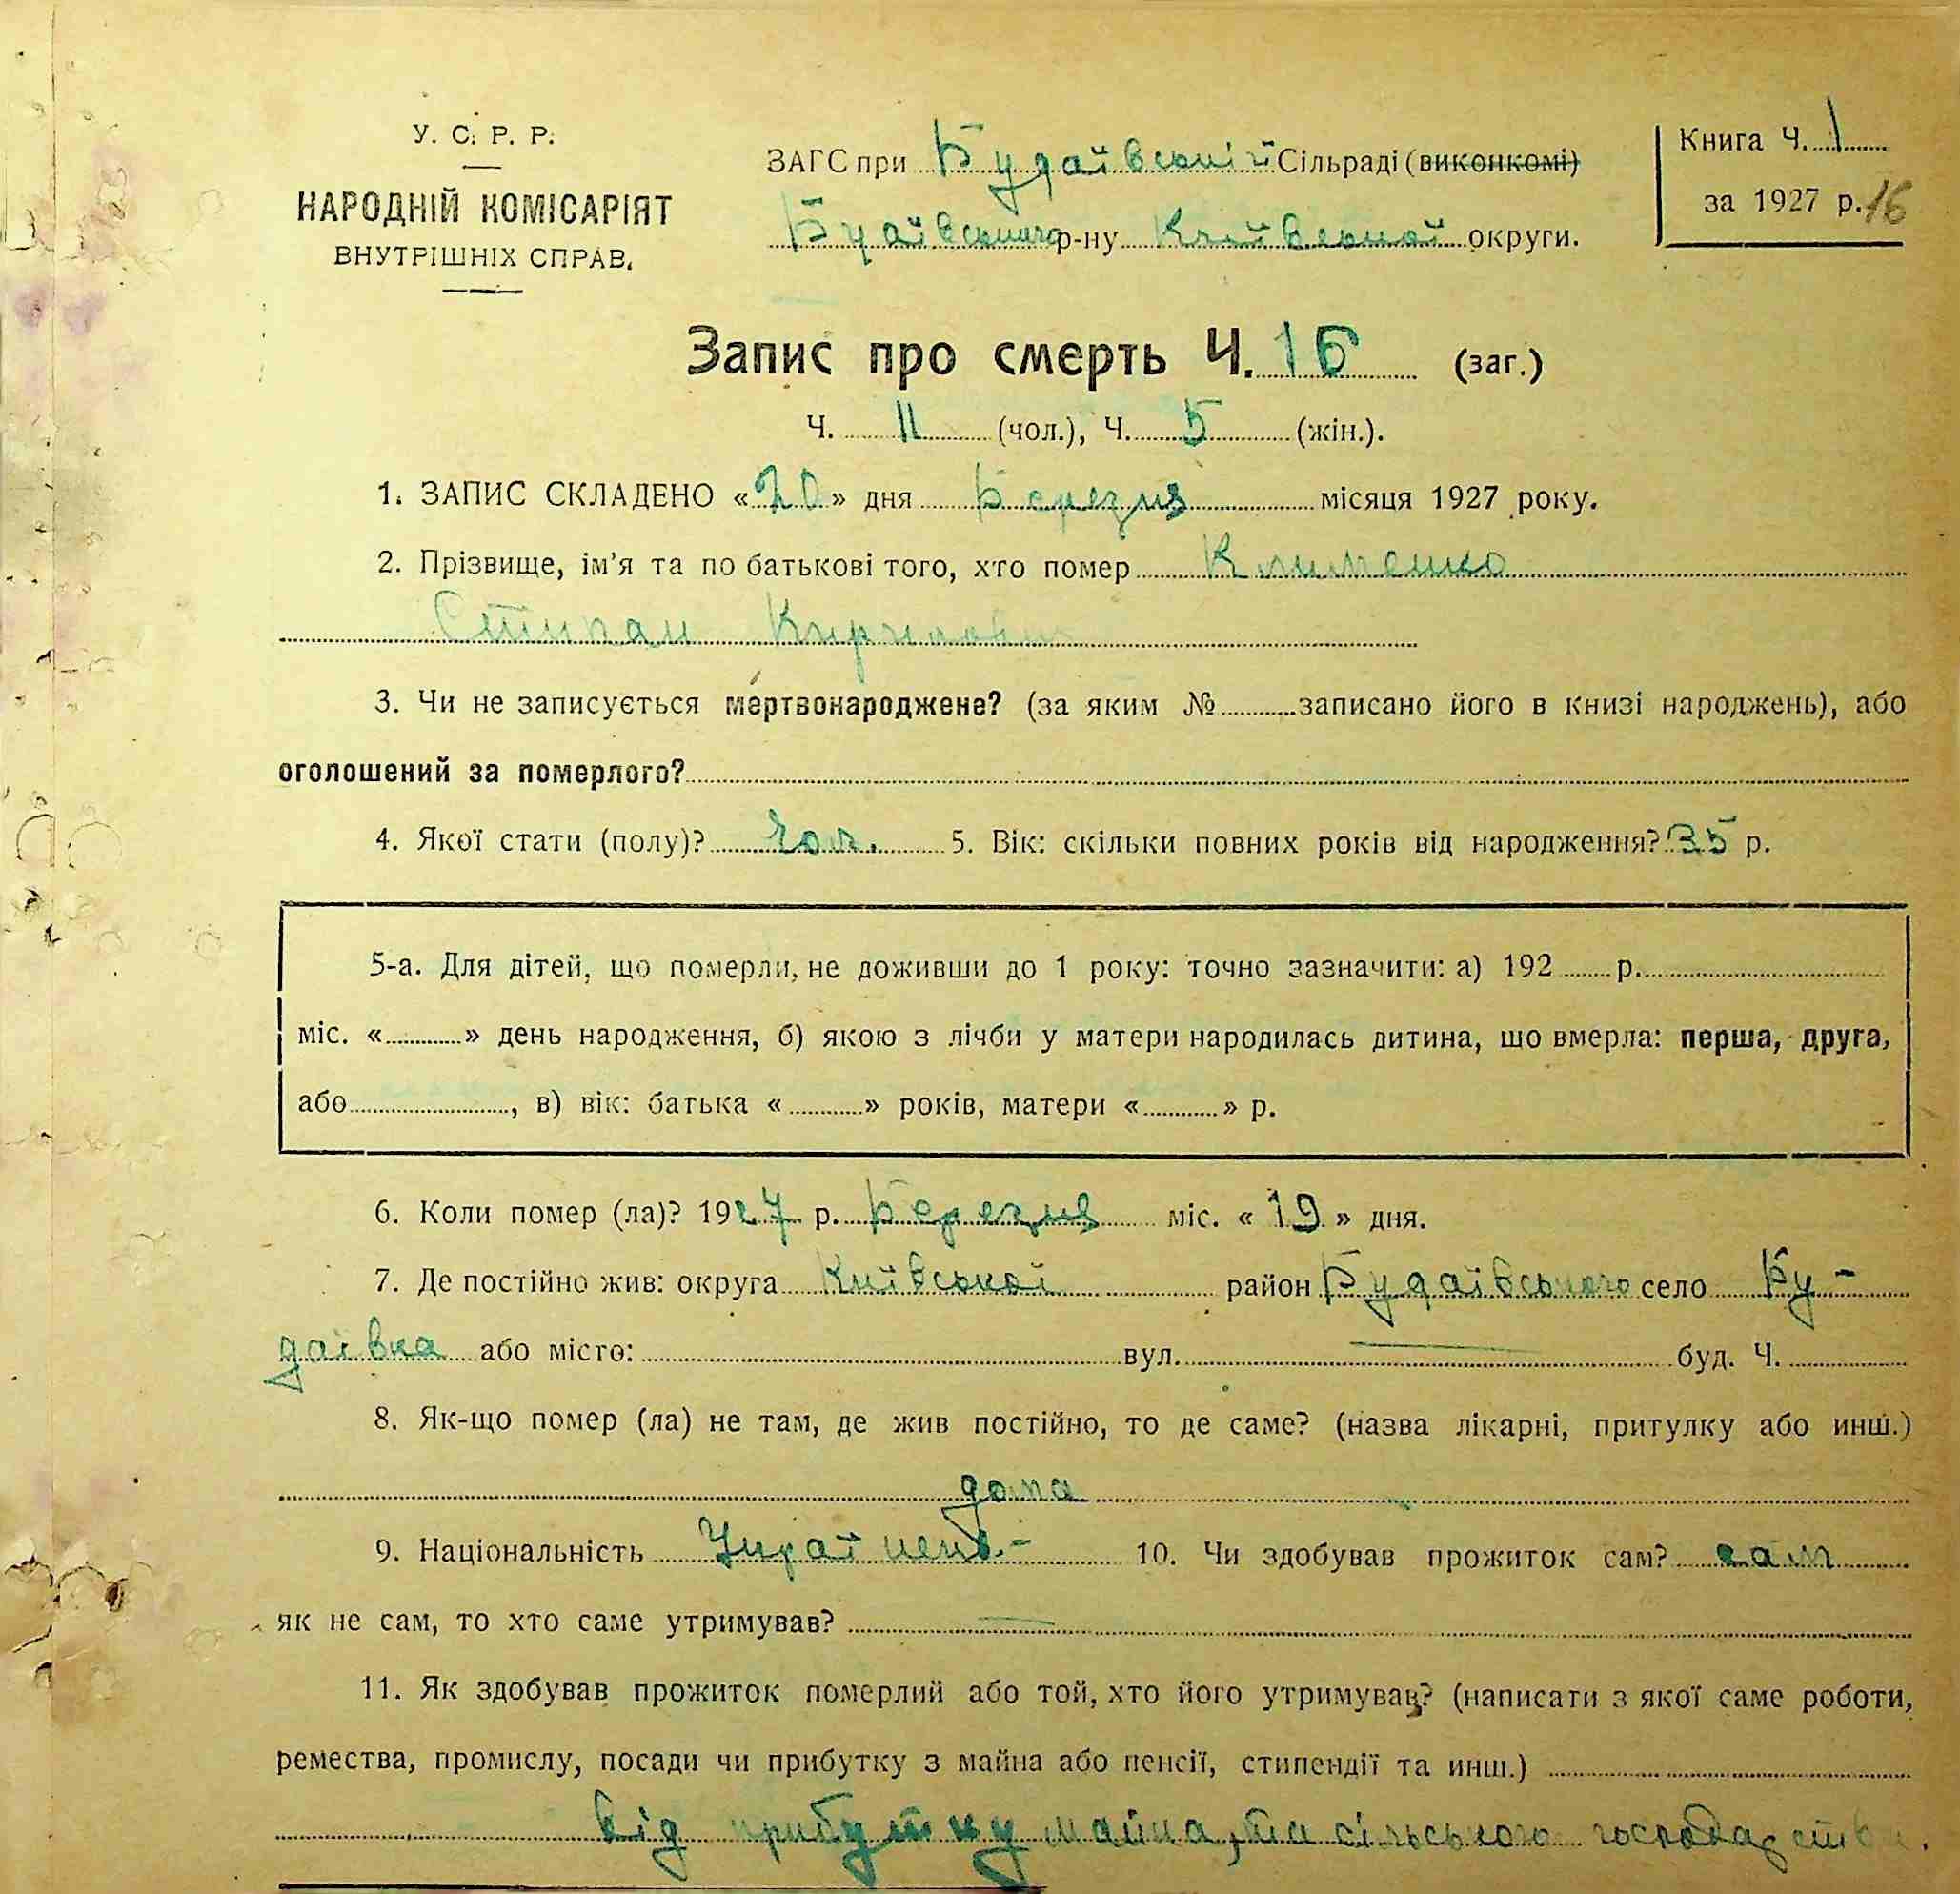 У. С. Р. Р.
НАРОДНІЙ КОМІСАРІЯТ
ВНУТРІШНІХ СПРАВ.
ЗАГС при Будаївській Сільраді (виконкомі)
Будаївського р-ну Київської округи.
Книга Ч. 1
за 1927 р. 16
Запис про смерть Ч. 16 (заг.)
Ч. 11 (чол.), Ч. 5 (жін.).
1. ЗАПИС СКЛАДЕНО «20» дня Березня місяця 1927 року.
2. Прізвище, ім'я та по батькові того, хто помер Клименко
Степан Кирилович
3. Чи не записується мертвонароджене? (за яким № записано його в книзі народжень), або
оголошений за померлого?
4. Якої стати (полу)? чол. 5. Вік: скільки повних років від народження? 35 р.
5-а. Для дітей, що померли, не доживши до 1 року: точно зазначити: а) 192 р.
міс. « » день народження, б) якою з лічби у матери народилась дитина, що вмерла: перша, друга,
або , в) вік: батька « » років, матери « » р.
6. Коли помер (ла)? 1927 р. Березня міс. «19» дня.
7. Де постійно жив: округа Київської район Будаївського село Бу-
даївка або місто: вул. — буд. Ч.
8. Як-що помер (ла) не там, де жив постійно, то де саме? (назва лікарні, притулку або инш.)
дома
9. Національність Україцень.- 10. Чи здобував прожиток сам? сам
як не сам, то хто саме утримував? —
11. Як здобував прожиток померлий або той, хто його утримував? (написати з якої саме роботи,
ремества, промислу, посади чи прибутку з майна або пенсії, стипендії та инш.)
від прибутку майна, та сільського господарства.